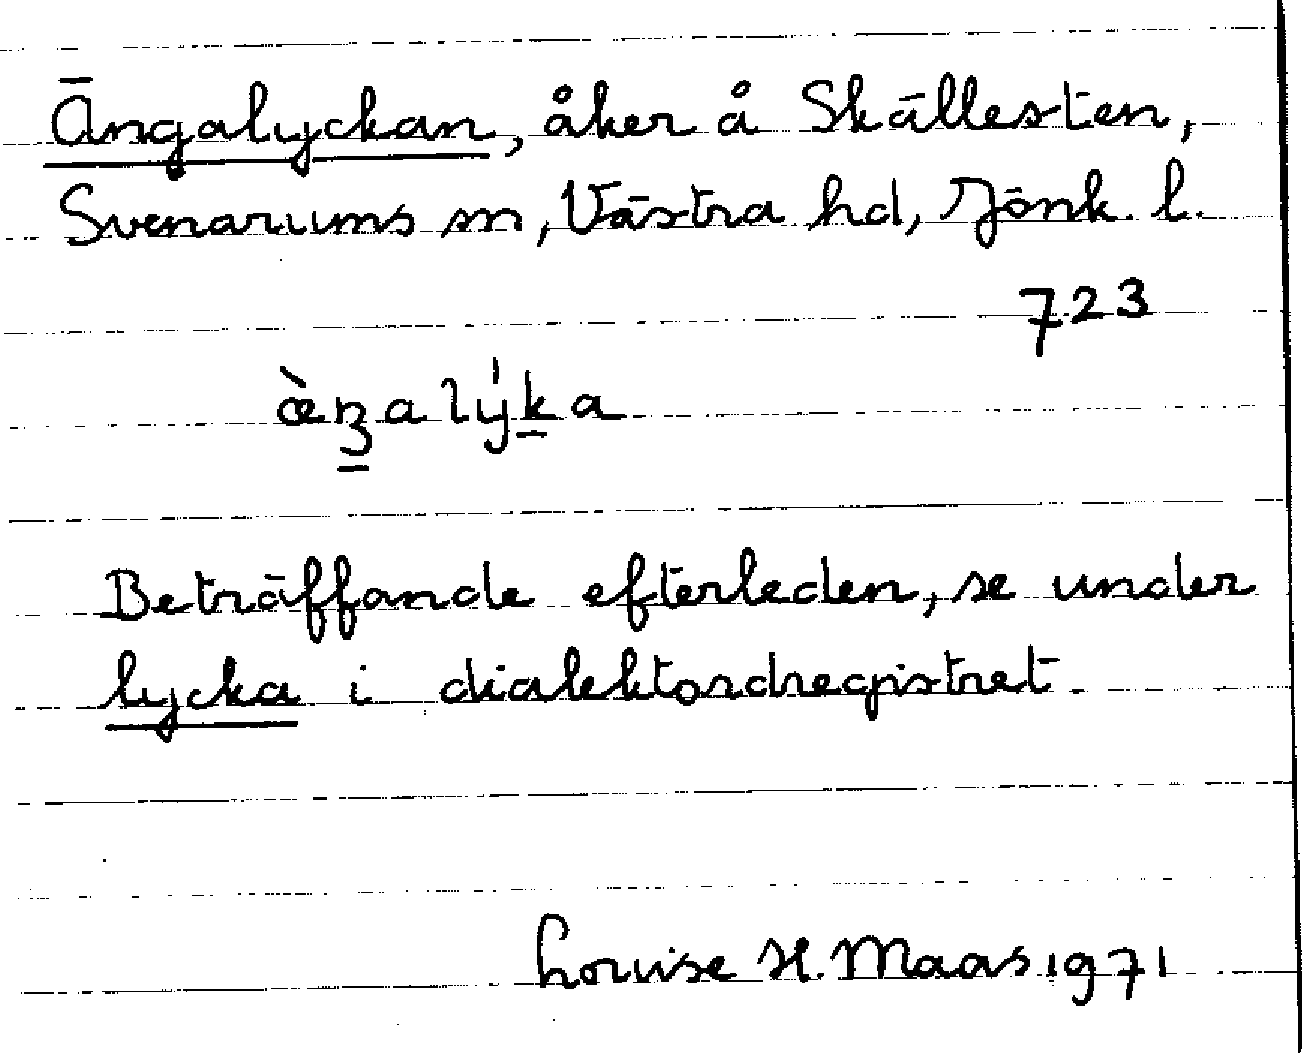 Ängalyckan, åker å Skällesten,
Svenarums sn, Västra hd, Jönk. l.
723
æ̀ȝalýka
Beträffande efterleden, se under
lycka i dialektordregistret.
Louise H. Maas 1971